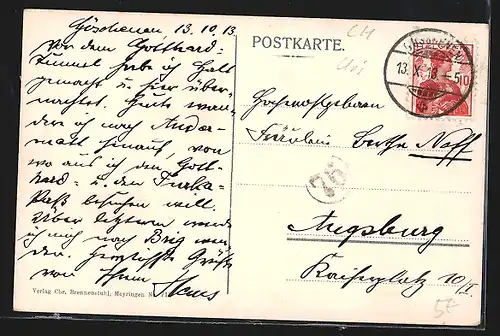 Göschenen, 13.10.13
Vor dem Gotthard-
Tunnel habe ich Halt
gemacht u. hier über-
nachtet. Heute wan-
dere ich nach Ander-
matt hinauf, von
wo aus ich den Gott-
hard- u. den Furka-
Paß besuchen will.
Über letzteren werde
ich mich nach Brig wen-
den. Herzlichste Grüße
von Ihrem Hans
Verlag Chr. Brennenstuhl, Meyringen
CH
Uri
POSTKARTE.
13.X.13.-5
10
Hochwohlgeboren
Fräulein Bertha Neff
76
Augsburg
Kaiserplatz 10/I.